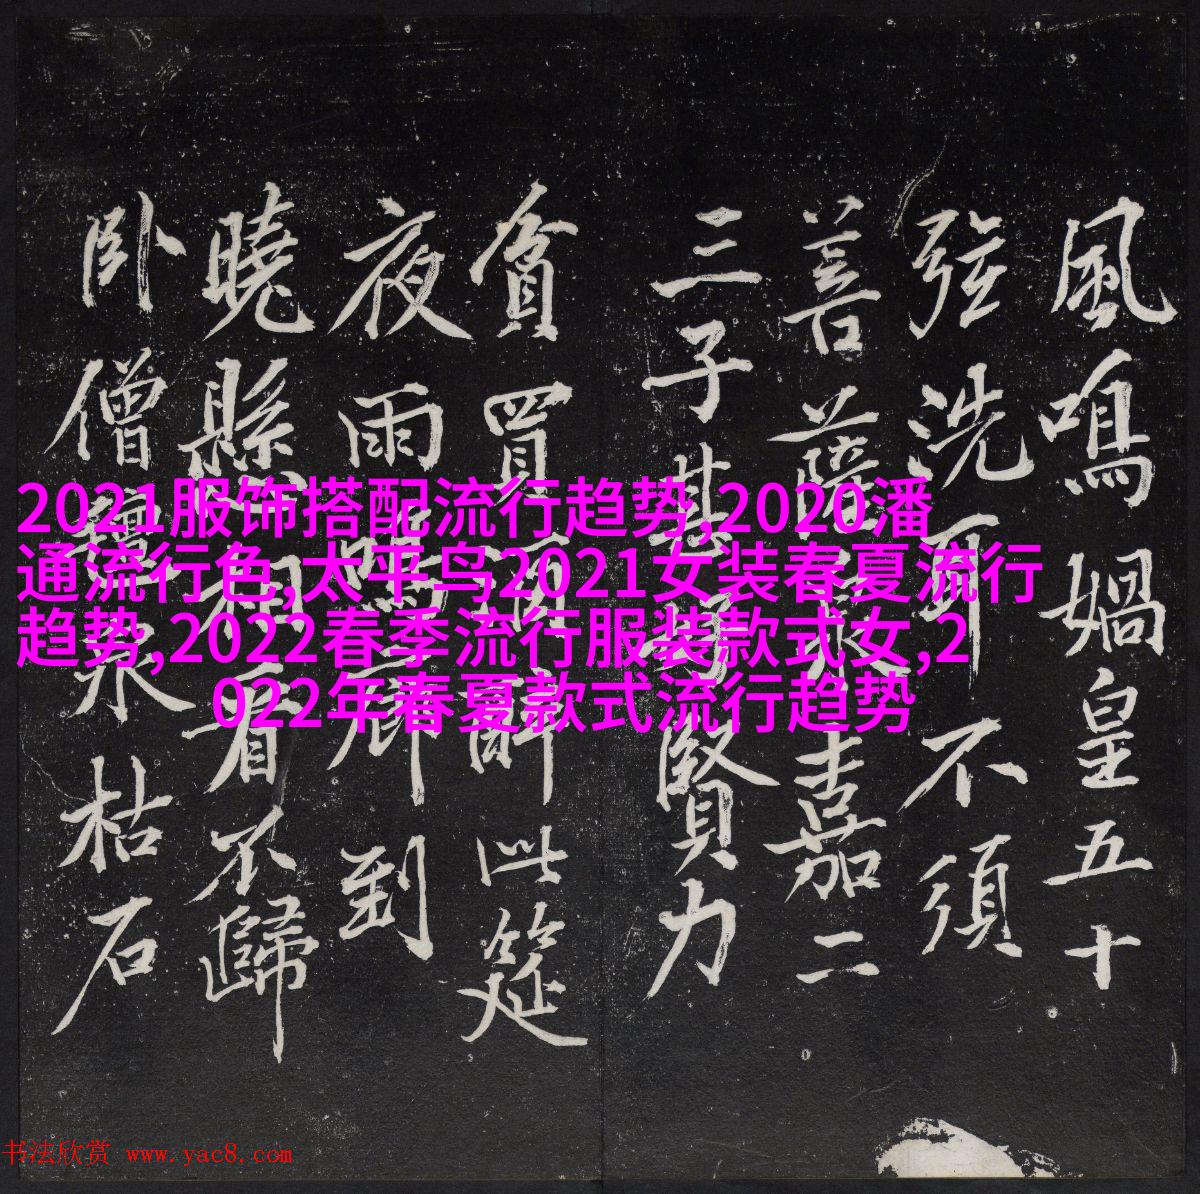 風鳴媧皇五十
弦洗耳不須
菩薩泉嘉二
三子甚好賢力
貧買酒醉此筵
夜雨鳴廊到
曉懸相看不歸
卧僧氈泉枯石
2021服饰搭配流行趋势,2020潘
通流行色,太平鸟2021女装春夏流行
趋势,2022春季流行服装款式女,2
022年春夏款式流行趋势
书法欣赏 www.yac8.com